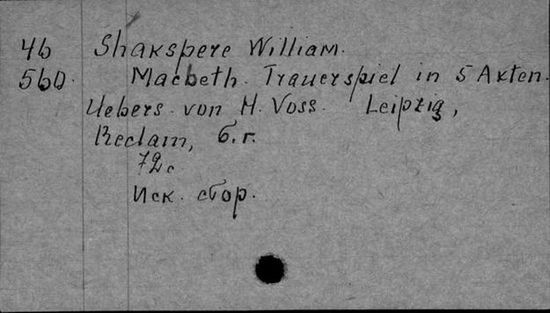 46 Shakspere William.
560. Macbeth. Trauerspiel in 5 Akten.
Uebers. von H. Voss. Leipzig,
Reclam, б.г.
72 с.
Иск. сбор.